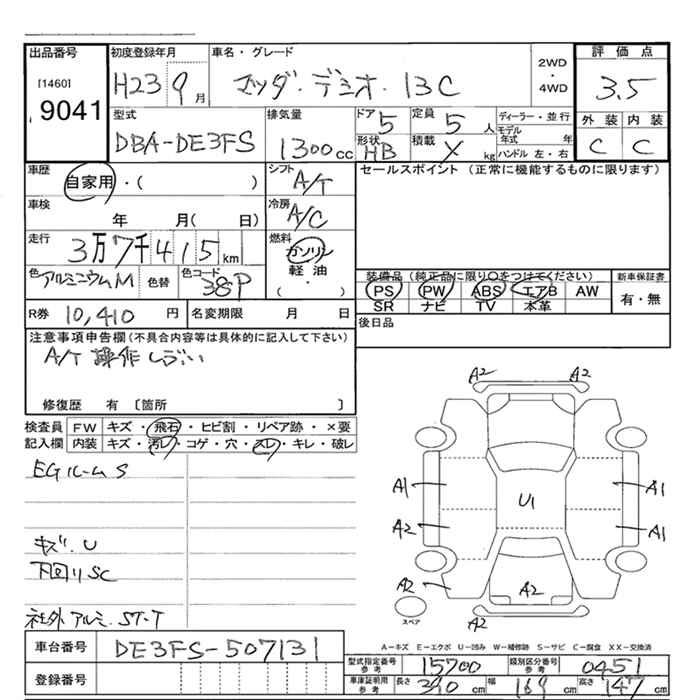 出品番号
[1460]
9041
初度登録年月
H23 9月
車名・グレード
マツダ・デミオ・13C
2WD
・
4WD
評価点
3.5
外装 内装
C C
型式
DBA-DE3FS
排気量
1300cc
ドア
5
定員
5人
形状
HB
積載
X kg
ディーラー・並行
モデル
年式 年
ハンドル 左・右
車歴
自家用・( )
シフト
A/T
セールスポイント (正常に機能するものに限ります)
車検
年 月( 日)
冷房
A/C
走行
3万7千415km
燃料
ガソリン
軽・油
( ・ )
色
アルミニウムM
色替
色コード
38P
装備品 (純正品に限り○をつけてください)
PS PW ABS エアB AW
SR ナビ TV 本革
新車保証書
有・無
R券 10,410円
名変期限 月 日
後日品
注意事項申告欄(不具合内容等は具体的に記入して下さい)
A/T 操作しづらい
修復歴 有〔箇所 〕
検査員
記入欄
FW キズ・飛石・ヒビ割・リペア跡・×要
内装 キズ・汚レ・コゲ・穴・スレ・キレ・破レ
EGルーム S
キズ.U
下回リSC
社外アルミ.ST-T
A2 A2
A1 U1 A1
A2 A1
A2 A2
A2
スペア
A−キズ E−エクボ U−凹み W−補修跡 S−サビ C−腐食 XX−交換済
車台番号 DE3FS-507131
登録番号
型式指定番号
参考
15700
類別区分番号
参考
0451
車庫証明用
参考
長さ 390cm 幅 169cm 高さ 147cm